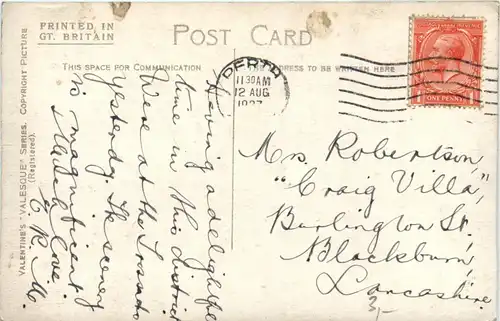 PRINTED IN
GT. BRITAIN
POST CARD
THIS SPACE FOR COMMUNICATION
ADDRESS TO BE WRITTEN HERE
VALENTINE'S "VALESQUE" SERIES. COPYRIGHT PICTURE
(Registered).
PERTH
11.30AM
12 AUG
1927
ONE PENNY
Having a delightful
time in this district
Were at the
yesterday. The scenery
is magnificent
love.
E. R. M.
Mrs. Robertson,
"Craig Villa,"
Burlington St.,
Blackburn,
Lancashire
3,-